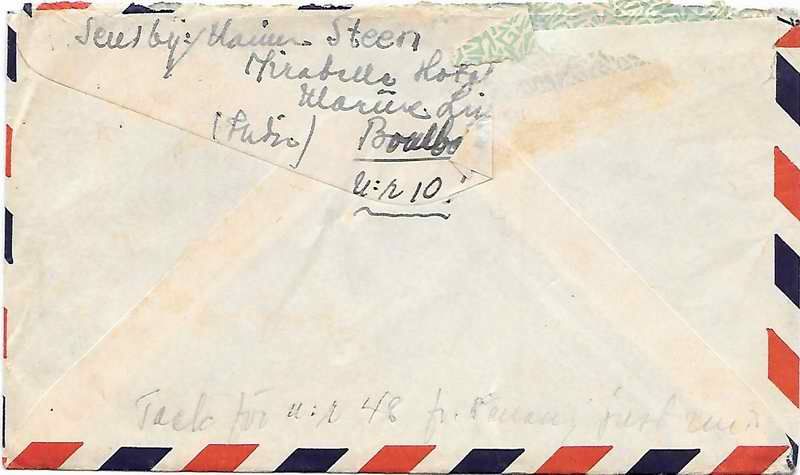 Sent by: Steen
Mirabelle Hotel
Marine Lin
(India) Bombo
N:r 10.
Tack för n:r 48 fr. Penang just nu